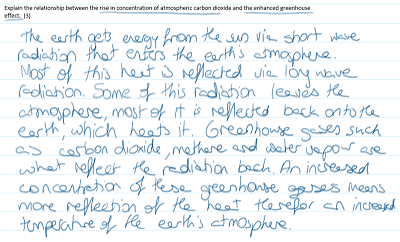 Explain the relationship between the rise in concentration of atmospheric carbon dioxide and the enhanced greenhouse
effect. (3)
the earth gets energy from the sun via short wave
radiation that enters the earth's atmosphere.
Most of this heat is reflected via long wave
radiation. Some of this radiation leaves the
atmosphere, most of it is reflected back onto the
earth, which heats it. Greenhouse gases such
as carbon dioxide, methane and water vapour are
what reflect the radiation back. An increased
concentration of these greenhouse gases means
more reflection of the heat therefor an increased
temperature of the earth's atmosphere.